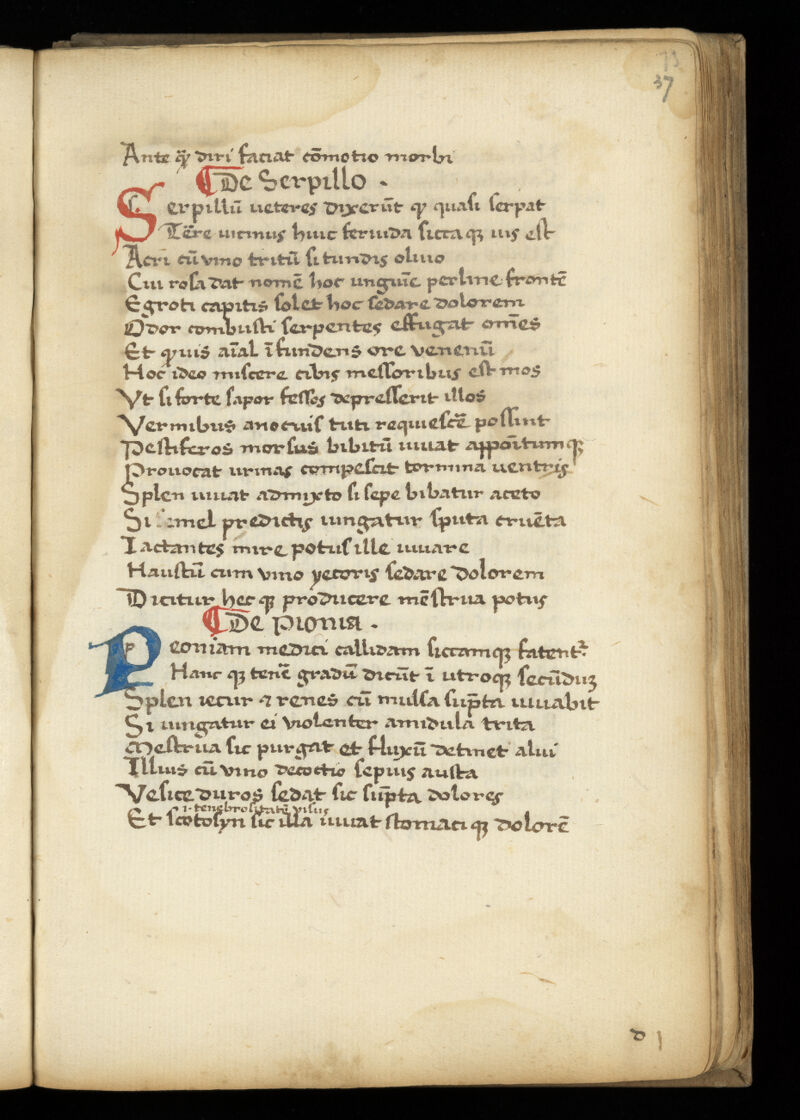 37
Ante qͣ diri faciat cōmotio morbi
De Serpillo .
Serpillū ueteres dixerūt qͥ quasi serpat
Terre uicinus huic feruida siccaqꝫ uis est
Acri cū vino tritū si tundis oliuo
Cui rosa dat nomē hoc unguīe perline frontē
Egroti capitis solet hoc sedare dolorem
Odor combusti serpentes effugat om̄es
Et qͣuis aīal īfundens ore venenū
Hoc ideo miscere cibis messoribus est mos
Vt si forte sapor fessos depresserit illos
Vermibus a nocuis tuti requiescē possint
Pestiferos morsus bibitū iuuat appoītumqꝫ
Prouocat urinas compescit tormina uentris
Splen iuuat admixto si sepe bibatur aceto
Si mel predictis iungatur sputa cruēta
Iactantes mire potus ille iuuare
Haustū cum vino yecoris sedare dolorem
Dicitur hecqꝫ producere mēstrua potus
De pionia .
Peoniam medici callidam siccamqꝫ fatent᷑
Hancqꝫ tenē gradū dicūt ī utroqꝫ secūduꝫ
Splen iecur ⁊ renes cū mulsa sūpta iuuabit
Si iungatur ei violenter amidula trita
Mestrua sic purgat et fluxū detinet alui
Illius cū vino decoctio sepius austa
Vesice duros sedat sic sūpta dolores
.i. tenebrositatē visus
Et scotosyn sic illa iuuat stomaciqꝫ dolorē
d